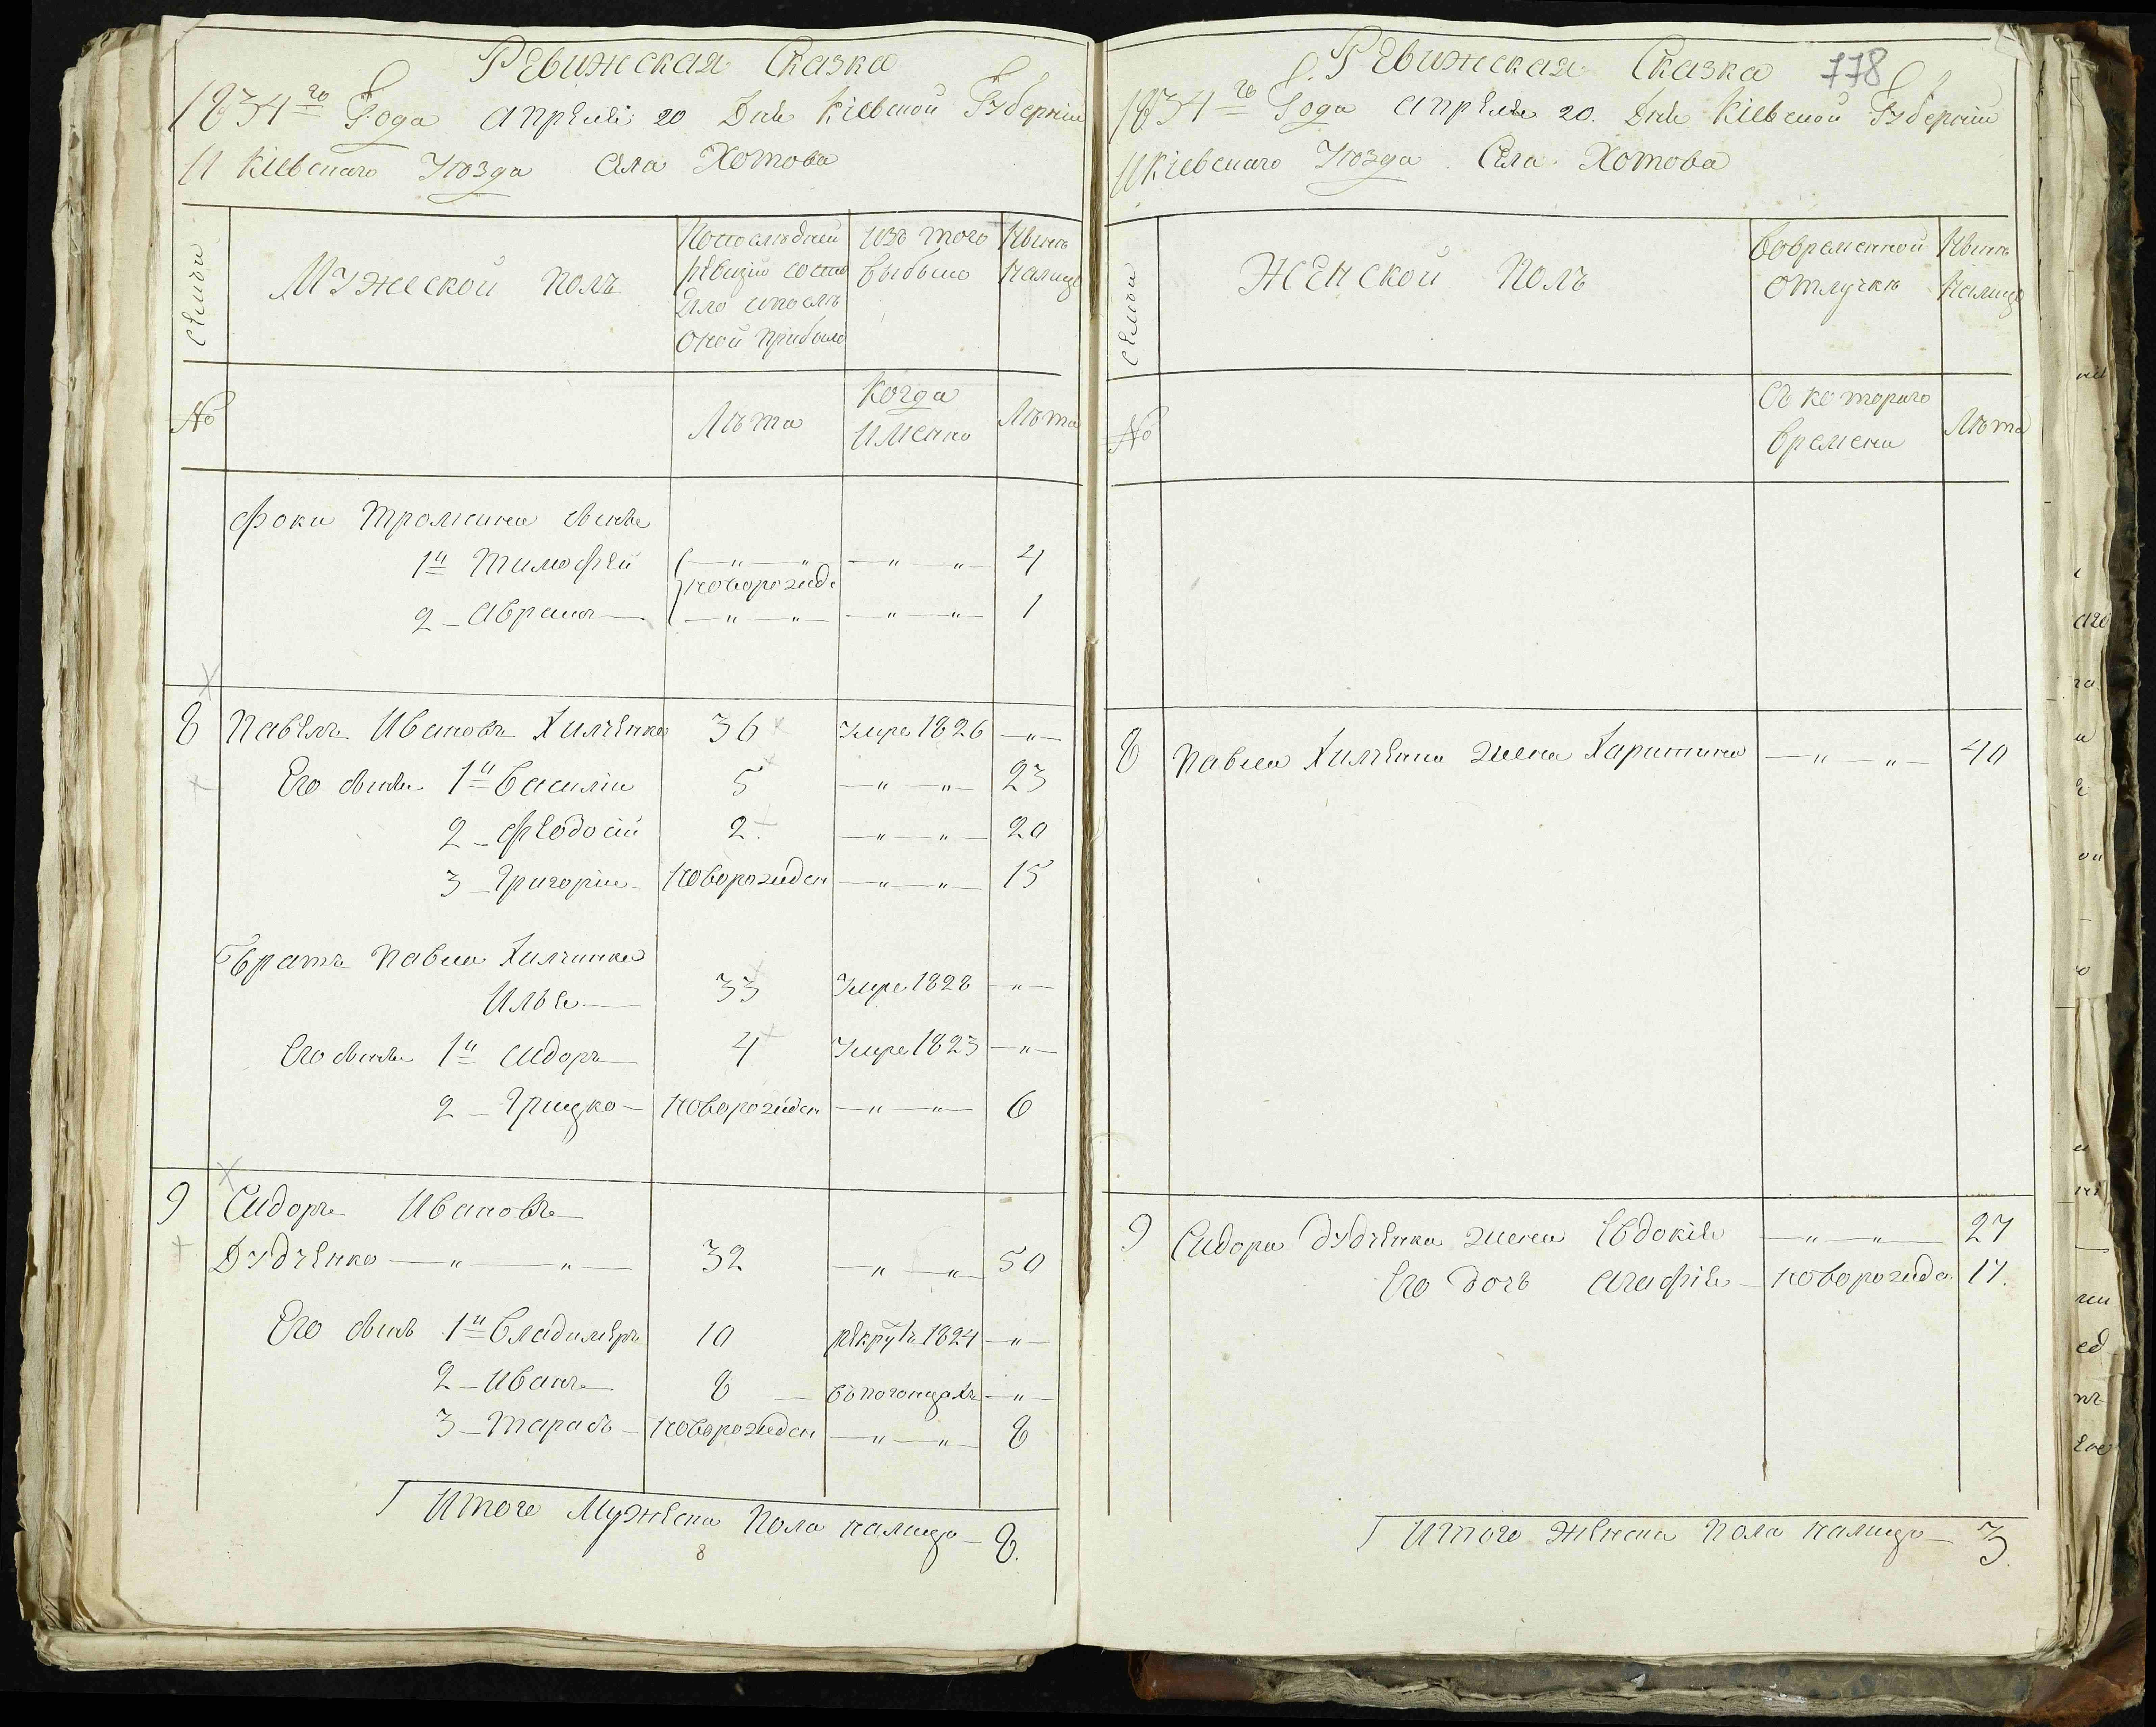 Ревижская Сказка
1834го Года апреля 20 Дня Кіевской Губерніи
и Кіевскаго Уѣзда Села Хотова
Семьи
Мужеской полъ
Попослѣдней ревизіи состояло и послѣ оной прибыло
изъ того выбыло
Нынѣ налицо
№
Лѣта
Когда именно
Лѣта
Фоки сыновья
1й Тимофей — " — " — — " — " — 4
новорожде
2 — Аврамъ — — " — " — — " — " — 1
8 Павелъ Ивановъ Химченко 36 Умре 1826 — " —
Его сынове 1й Василіи 5 — " — " — 23
2 — Феодосій 2 — " — " — 20
3 — Григоріи — новорожден — " — " — 15
Братъ Павла Химчинка
Илья — 33 Умре 1828 — " —
Его сынове 1й Сидоръ 4 Умре 1823 — " —
2 — Грицко — новорожден — " — " — 6
9 Сидоръ Ивановъ
Дудченко — " — " — 32 — " — " — 50
Его сынъ 1й Владимеръ 10 рекрутъ 1824 — " —
2 — Иванъ — 8 — въ погонцахъ — " —
3 — Тарасъ — новорожден — " — " — 8
Итого Мужеска Пола налицо — 8.
8
Ревижская Сказка 778
1834го Года апреля 20. Дня Кіевской Губерніи
и Кіевскаго Уѣзда Села Хотова
Семьи
Женской полъ
Вовременной отлучкѣ
Нынѣ налицо
№
Съ котораго времени
Лѣта
8 Павла Химченка жена Харитина — " — " — 40
9 Сидора Дудченка жена Евдокія — " — " — 27
Его дочь Агафія — новорожде 17.
Итого Женска Пола налицо — 3.